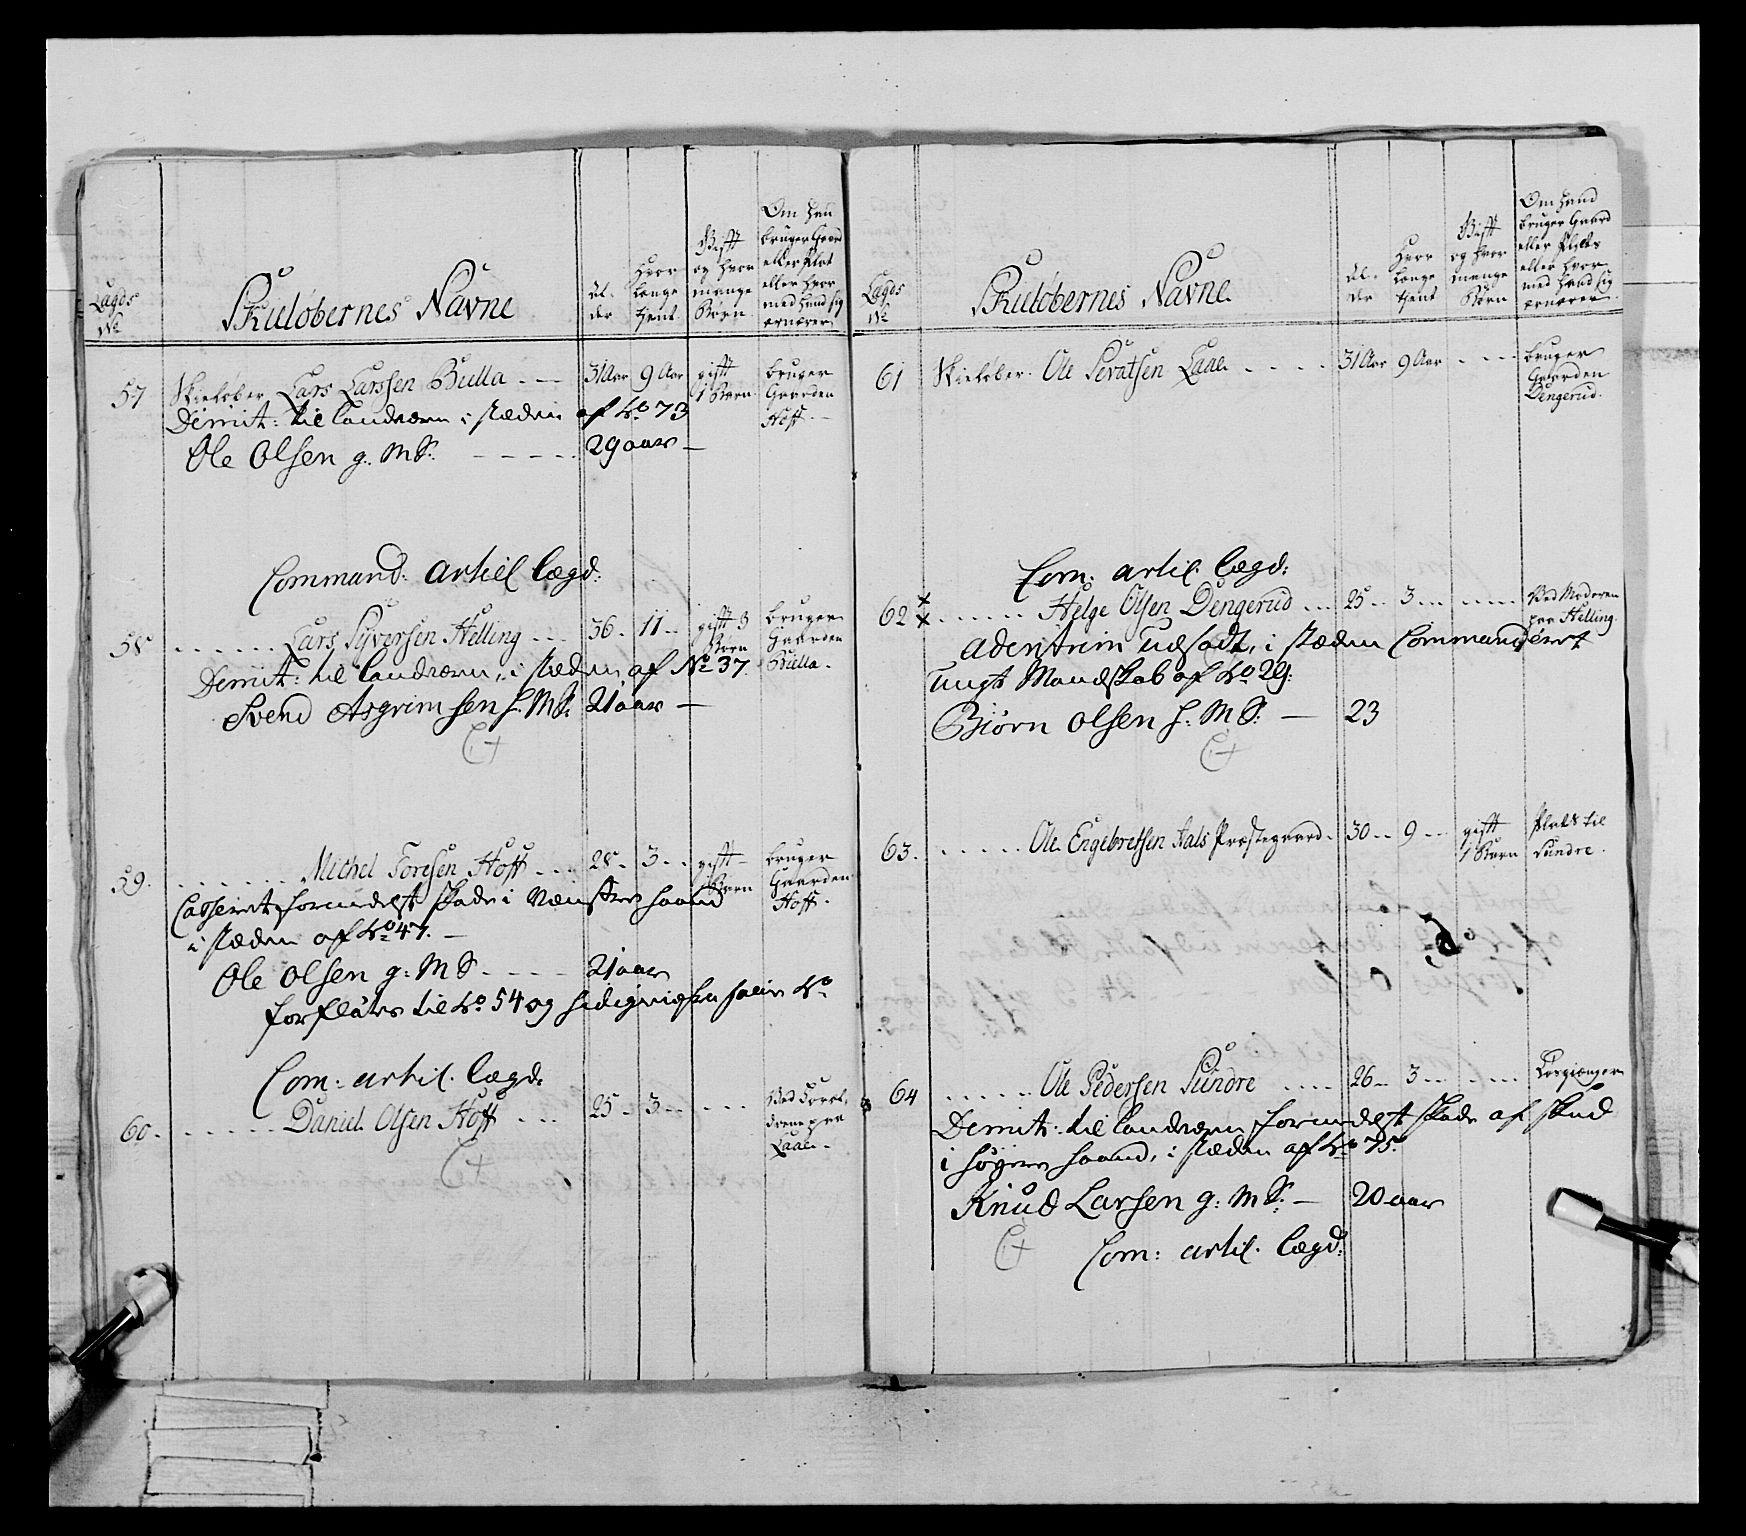 Lægds
No
Skiløbernes Navne
Al-
der
Hvor
længe
tient
Gift
og hvor
mange
Børn
Om han
bruger Gaard
eller Plat
eller hvor
med hand sig
ernærer
57
Skieløber Lars Larssen Bulla - - -
31 Aar
9 Aar
gift
1 Barn
bruger
Gaarden
Hoff -
Dimit: til landværn i stæden af No 73
Ole Olsen g: M S: - - - - -
29 aar -
Command: artiel lægd:
58
. . . . . . Lars Syversen Helling - - -
36 -
11 -
gift 3
Børn
bruger
Gaarden
Bulla -
Dimit: til landværn, i stæden af No 37.
Svend Asgrimsen S. M S:
21 aar -
C+
59.
. . . . . . Michel Toresen Hoff - - -
28 -
3 - -
gift -
1 Barn
bruger
Gaarden
Hoff -
Casseret formedelst skade i venstre haand
i stæden af No 47. -
Ole Olsen g: M S - - - -
21 aar
forfløttes til No 54 og
Com: artil. lægd:
60.
- - - - - - Daniel Olsen Hoff - - -
25 -
3 - -
- - -
Ved Forel-
drene paa
Laae -
C+
Lægds
No
Skiløbernes Navne.
Al-
der
Hvor
længe
tient
Gift
og hvor
mange
Børn
Om hand
bruger Gaard
eller Plads
eller hvor-
med hand sig
ernærer
61
Skieløber. Ole Laae. - - - -
31 Aar
9 Aar
- - - -
bruger
Gaarden
Dengerud.
Com: artil. lægd:
62
. . . . . . Helge Olsen Dengerud - - -
25 - -
3 - -
- - - -
Ved Moderen
paa Helling.
ad interim udsadt, i stæden Commanderet
ungt Mandskab af No 29:
Biørn Olsen S. M S: -
23
C+
63.
. . . . . . Ole Engebretsen Aals Præstegaard -
30 - -
9 - -
gift
1 Barn
Plads til
Sundre.
64
. . . . . . Ole Pedersen Sundre - - - -
26 -
3 - -
- - - -
Løsgiænger
Dimit: til landværn formedelst skade af skud
i høyre haand, i stæden af No 75.
Knud Larsen g: M S: -
20 aar
C+
Com: artil. lægd: